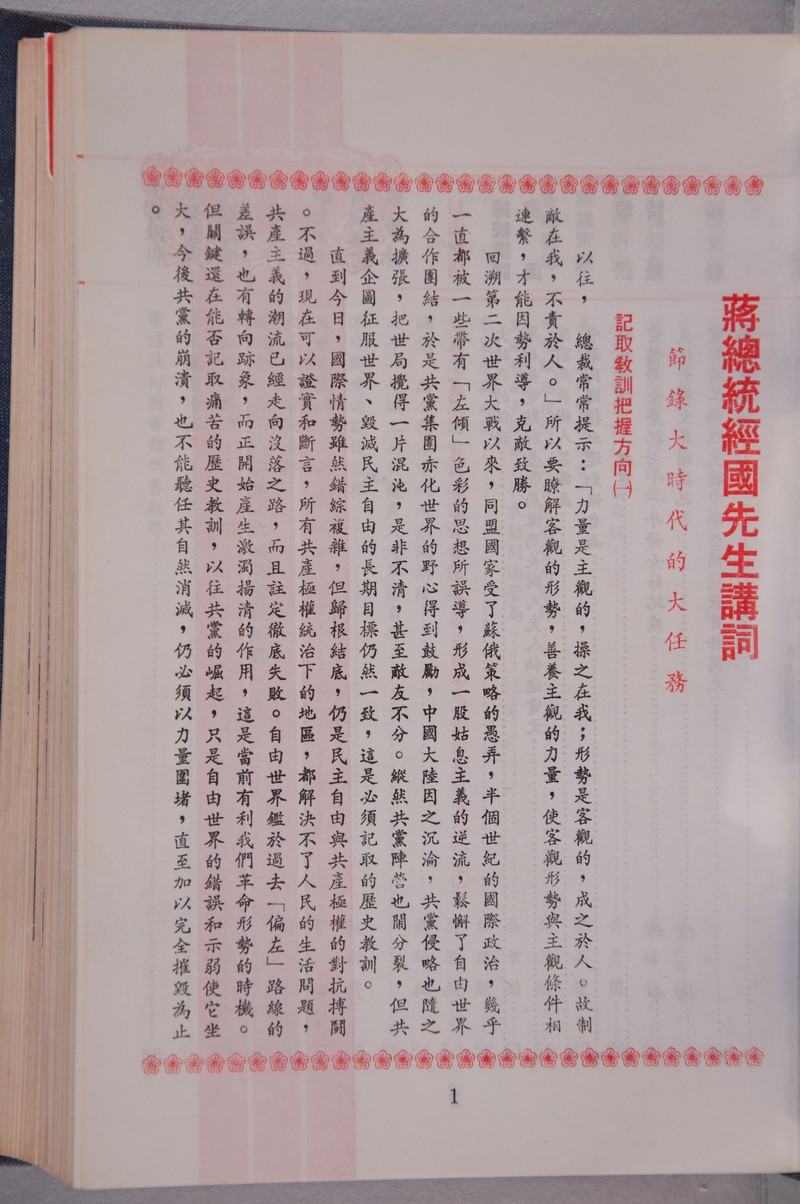 蔣總統經國先生講詞
節錄大時代的大任務
記取教訓把握方向㈠
以往，　總裁常常提示：「力量是主觀的，操之在我；形勢是客觀的，成之於人。故制
敵在我，不責於人。」所以要瞭解客觀的形勢，善養主觀的力量，使客觀形勢與主觀條件相
連繫，才能因勢利導，克敵致勝。
回溯第二次世界大戰以來，同盟國家受了蘇俄策略的愚弄，半個世紀的國際政治，幾乎
一直都被一些帶有「左傾」色彩的思想所誤導，形成一股姑息主義的逆流，鬆懈了自由世界
的合作團結，於是共黨集團赤化世界的野心得到鼓勵，中國大陸因之沉淪，共黨侵略也隨之
大為擴張，把世局攪得一片混沌，是非不清，甚至敵友不分。縱然共黨陣營也鬧分裂，但共
產主義企圖征服世界、毀滅民主自由的長期目標仍然一致，這是必須記取的歷史教訓。
直到今日，國際情勢雖然錯綜複雜，但歸根結底，仍是民主自由與共產極權的對抗搏鬪
。不過，現在可以證實和斷言，所有共產極權統治下的地區，都解決不了人民的生活問題，
共產主義的潮流已經走向沒落之路，而且註定徹底失敗。自由世界鑑於過去「偏左」路線的
差誤，也有轉向跡象，而正開始產生激濁揚清的作用，這是當前有利我們革命形勢的時機。
但關鍵還在能否記取痛苦的歷史教訓，以往共黨的崛起，只是自由世界的錯誤和示弱使它坐
大，今後共黨的崩潰，也不能聽任其自然消滅，仍必須以力量圍堵，直至加以完全摧毀為止
。
1